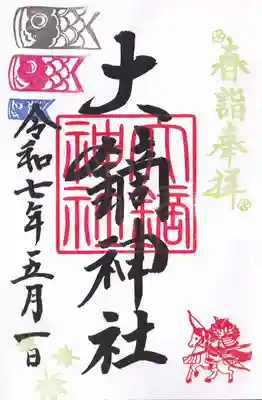 春詣奉拝
大鏑神社
大鏑神社
令和七年五月一日